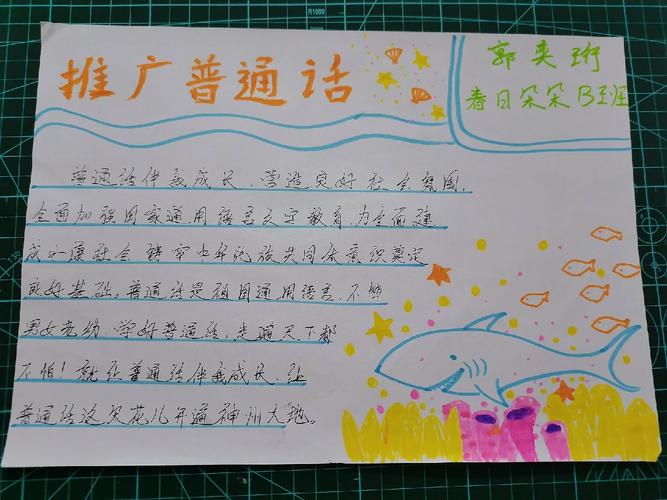 推广普通话
郭奕珩
春日朵朵B班
普通话伴我成长,营造良好社会氛围,
全面加强国家通用语言文字教育,为全面建
成小康社会铸牢中华民族共同体意识奠定
良好基础。普通话是祖国通用语言,不
男女老幼,学好普通话,走遍天下都
不怕!就让普通话伴我成长,让
普通话这朵花儿开遍神州大地。